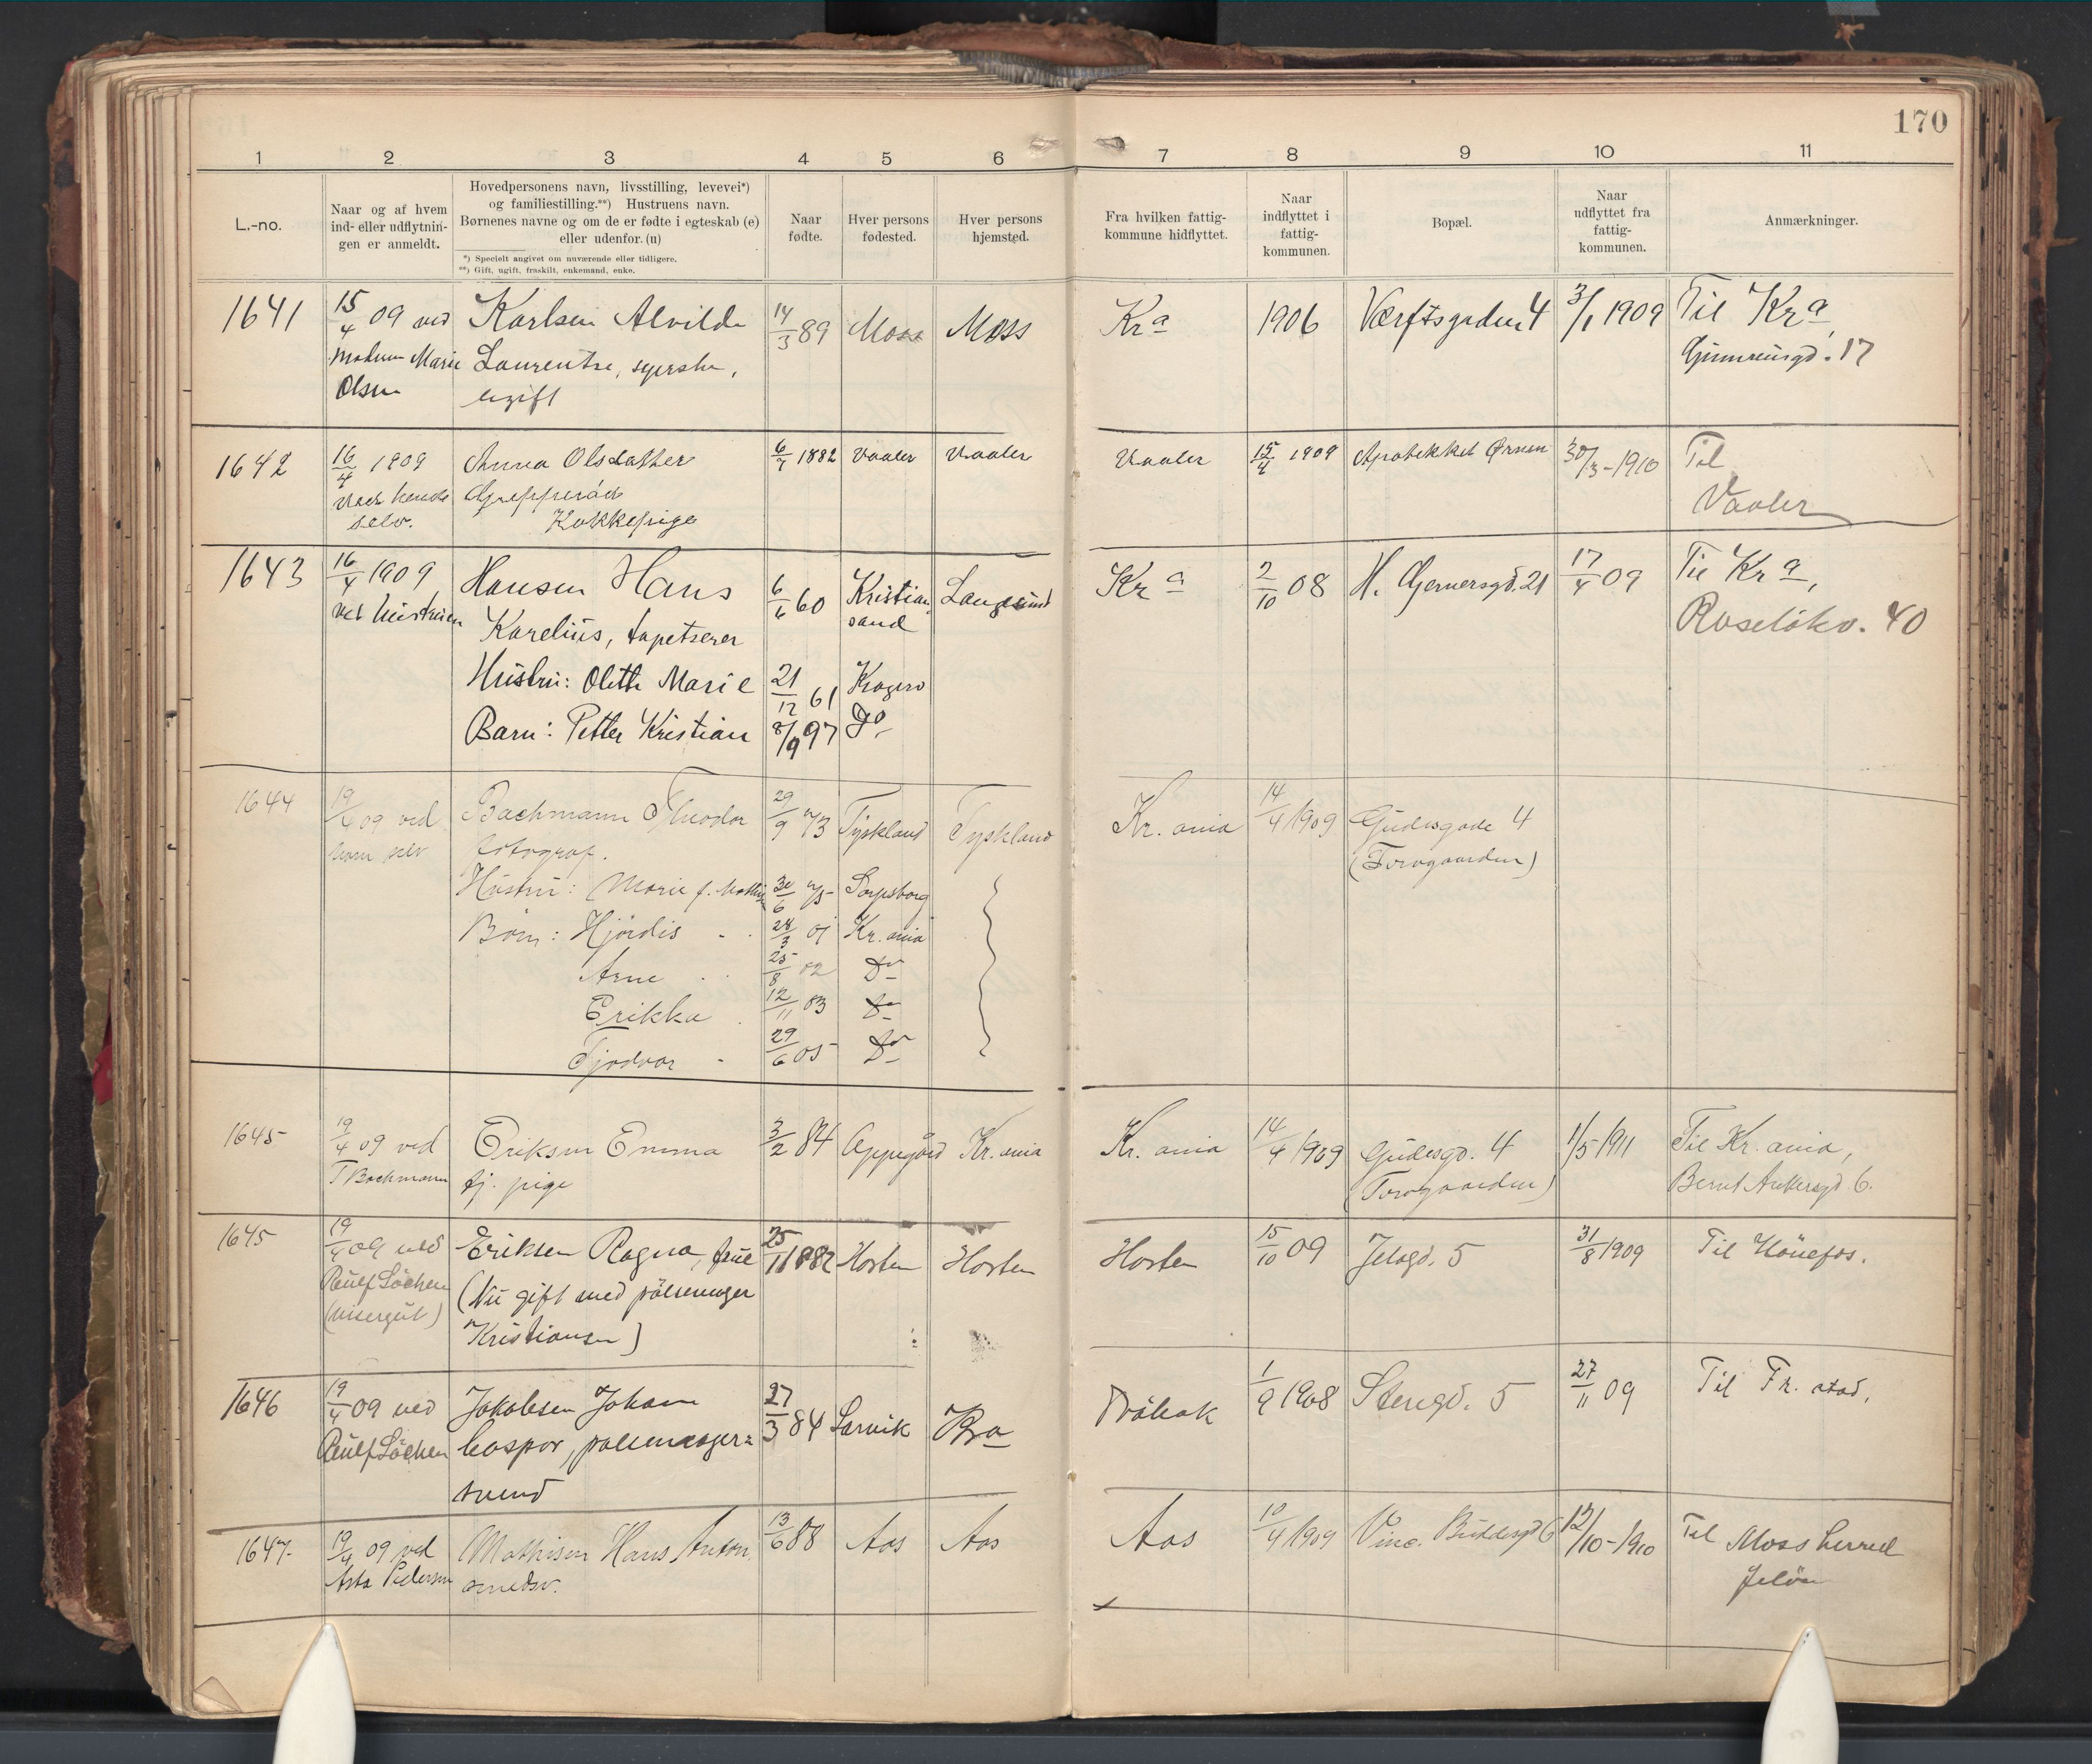 170
1 2 3 4 5 6 7 8 9 10 11
L.-no.
Naar og af hvem
ind- eller udflytnin-
gen er anmeldt.
Hovedpersonens navn, livsstilling, levevei*)
og familiestilling.**) Hustruens navn.
Børnenes navne og om de er fødte i egteskab (e)
eller udenfor. (u)
*) Specielt angivet om nuværende eller tidligere.
**) Gift, ugift, fraskilt, enkemand, enke.
Naar
fødte.
Hver persons
fødested.
Hver persons
hjemsted.
Fra hvilken fattig-
kommune hidflyttet.
Naar
indflyttet i
fattig-
kommunen.
Bopæl.
Naar
udflyttet fra
fattig-
kommunen.
Anmærkninger.
1641 15/4 09 ved Karlsen Alvilde 14/3 89 Moss Moss Kra 1906 Værftsgaden 4 3/1 1909 Til Kra,
Madam Marie Laurentse, syerske, 17
Olsen ugift
1642 16/4 1909 Anna Olsdatter 6/7 1882 Vaaler Vaaler Vaaler 15/4 1909 Apotekket Ørnen 30/3-1910 Til
ved hende Gropperød Vaaler
selv. Kokkepige
1643 16/4 1909 Hansen Hans 6/6 60 Kristian- Langesund Kra 2/10 08 H. Gernersgd. 21 17/4 09 Til Kra,
ved hustruen Karelius, tapetserer sand Ruseløkv. 40
Hustru: Olette Marie 21/12 61 Kragerø
Barn: Petter Kristian 8/9 97 Do.
1644 19/4 09 ved Bachmann Theodor 29/9 73 Tyskland Tyskland Kr.ania 14/4 1909 Gudesgade 4
ham selv fotograf. (Torvgaarden)
Hustru: Marie f. 30/6 75 Sarpsborg
Børn: Hjördis 28/3 01 Kr.ania
Arne 25/8 02 Do
Erikka 12/11 03 Do
Tjodvar 29/6 05 Do
1645 19/4 09 ved Eriksen Emma 3/2 84 Oppegård Kr.ania Kr.ania 14/4 1909 Gudesgd. 4 1/5 1911 Til Kr.ania,
T Bachmann tj. pige (Torvgaarden) Bernt Ankersgd 6.
1645 19/4 09 ved Eriksen Ragna, frue 25/1 1882 Horten Horten Horten 15/10 09 Jeløgd. 5 31/8 1909 Til Hönefos.
Löchen (Nu gift med pölsemager
(visergut) Kristiansen)
1646 19/4 09 ved Jakobsen Johan 27/3 84 Larvik Kra Dröbak 1/9 1908 Stengd. 5 27/11 09 Til Fr.stad,
Löchen Caspar, pölsemager-
svend
1647. 19/4 09 ved Mathisen Hans Anton 13/6 88 Aas Aas Aas 10/4 1909 Vinc. Buddesgd 6 12/10-1910 Til Moss herred
Asta Pedersen smedsv. Jeløen